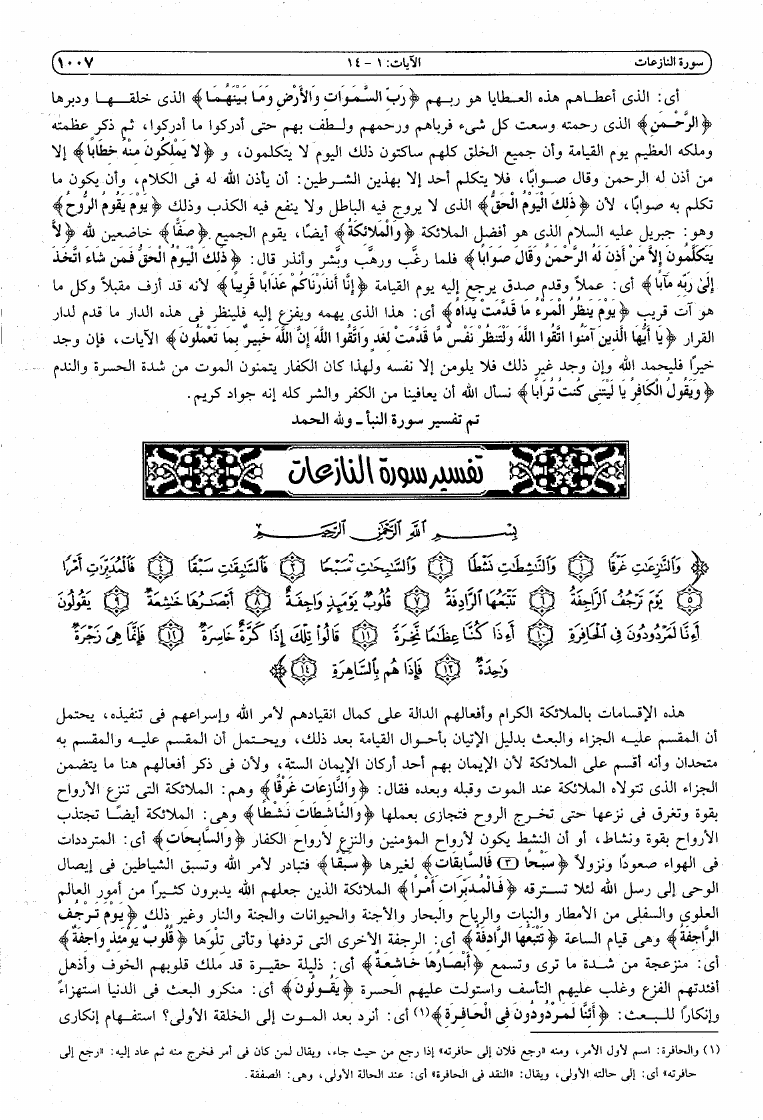 سورة النازعات
الآيات: ١ - ١٤
١٠٠٧
أى: الذى أعطاهم هذه العطايا هو ربهم ﴿رَبِّ السَّمَوَاتِ وَالأَرْضِ وَمَا بَيْنَهُمَا﴾ الذى خلقها ودبرها
﴿الرَّحْمَنِ﴾ الذى رحمته وسعت كل شىء فرباهم ورحمهم ولطف بهم حتى أدركوا ما أدركوا، ثم ذكر عظمته
وملكه العظيم يوم القيامة وأن جميع الخلق كلهم ساكتون ذلك اليوم لا يتكلمون، و ﴿لا يَمْلِكُونَ مِنْهُ خِطَابًا﴾ إلا
من أذن له الرحمن وقال صوابًا، فلا يتكلم أحد إلا بهذين الشرطين: أن يأذن الله له فى الكلام، وأن يكون ما
تكلم به صوابًا، لأن ﴿ذَلِكَ الْيَوْمُ الْحَقُّ﴾ الذى لا يروج فيه الباطل ولا ينفع فيه الكذب وذلك ﴿يَوْمَ يَقُومُ الرُّوحُ﴾
وهو: جبريل عليه السلام الذى هو أفضل الملائكة ﴿وَالْمَلائِكَةُ﴾ أيضًا، يقوم الجميع ﴿صَفًّا﴾ خاضعين لله ﴿لاَّ
يَتَكَلَّمُونَ إِلاَّ مَنْ أَذِنَ لَهُ الرَّحْمَنُ وَقَالَ صَوَابًا﴾ فلما رغَّب ورهَّب وبشَّر وأنذر قال: ﴿ذَلِكَ الْيَوْمُ الْحَقُّ فَمَن شَاءَ اتَّخَذَ
إِلَىٰ رَبِّهِ مَآبًا﴾ أى: عملاً وقدم صدق يرجع إليه يوم القيامة ﴿إِنَّا أَنذَرْنَاكُمْ عَذَابًا قَرِيبًا﴾ لأنه قد أزف مقبلاً وكل ما
هو آت قريب ﴿يَوْمَ يَنظُرُ الْمَرْءُ مَا قَدَّمَتْ يَدَاهُ﴾ أى: هذا الذى يهمه ويفزع إليه فلينظر فى هذه الدار ما قدم لدار
القرار ﴿يَا أَيُّهَا الَّذِينَ آمَنُوا اتَّقُوا اللَّهَ وَلْتَنظُرْ نَفْسٌ مَّا قَدَّمَتْ لِغَدٍ وَاتَّقُوا اللَّهَ إِنَّ اللَّهَ خَبِيرٌ بِمَا تَعْمَلُونَ﴾ الآيات، فإن وجد
خيرًا فليحمد الله وإن وجد غير ذلك فلا يلومن إلا نفسه ولهذا كان الكفار يتمنون الموت من شدة الحسرة والندم
﴿وَيَقُولُ الْكَافِرُ يَا لَيْتَنِي كُنتُ تُرَابًا﴾ نسأل الله أن يعافينا من الكفر والشر كله إنه جواد كريم.
تم تفسير سورة النبأ ـ ولله الحمد
تفسير سورة النازعات
بِسْمِ اللَّهِ الرَّحْمَٰنِ الرَّحِيمِ
﴿ وَالنَّازِعَاتِ غَرْقًا ١ وَالنَّاشِطَاتِ نَشْطًا ٢ وَالسَّابِحَاتِ سَبْحًا ٣ فَالسَّابِقَاتِ سَبْقًا ٤ فَالْمُدَبِّرَاتِ أَمْرًا
٥ يَوْمَ تَرْجُفُ الرَّاجِفَةُ ٦ تَتْبَعُهَا الرَّادِفَةُ ٧ قُلُوبٌ يَوْمَئِذٍ وَاجِفَةٌ ٨ أَبْصَارُهَا خَاشِعَةٌ ٩ يَقُولُونَ
أَءِنَّا لَمَرْدُودُونَ فِي الْحَافِرَةِ ١٠ أَءِذَا كُنَّا عِظَامًا نَّخِرَةً ١١ قَالُوا تِلْكَ إِذًا كَرَّةٌ خَاسِرَةٌ ١٢ فَإِنَّمَا هِيَ زَجْرَةٌ
وَاحِدَةٌ ١٣ فَإِذَا هُم بِالسَّاهِرَةِ ١٤ ﴾
هذه الإقسامات بالملائكة الكرام وأفعالهم الدالة على كمال انقيادهم لأمر الله وإسراعهم فى تنفيذه، يحتمل
أن المقسم عليه الجزاء والبعث بدليل الإتيان بأحوال القيامة بعد ذلك، ويحتمل أن المقسم عليه والمقسم به
متحدان وأنه أقسم على الملائكة لأن الإيمان بهم أحد أركان الإيمان الستة، ولأن فى ذكر أفعالهم هنا ما يتضمن
الجزاء الذى تتولاه الملائكة عند الموت وقبله وبعده فقال: ﴿وَالنَّازِعَاتِ غَرْقًا﴾ وهم: الملائكة التى تنزع الأرواح
بقوة وتغرق فى نزعها حتى تخرج الروح فتجازى بعملها ﴿وَالنَّاشِطَاتِ نَشْطًا﴾ وهى: الملائكة أيضًا تجتذب
الأرواح بقوة ونشاط، أو أن النشط يكون لأرواح المؤمنين والنزع لأرواح الكفار ﴿وَالسَّابِحَاتِ﴾ أى: المترددات
فى الهواء صعودًا ونزولاً ﴿سَبْحًا ٣ فَالسَّابِقَاتِ﴾ لغيرها ﴿سَبْقًا﴾ فتبادر لأمر الله وتسبق الشياطين فى إيصال
الوحى إلى رسل الله لئلا تسترقه ﴿فَالْمُدَبِّرَاتِ أَمْرًا﴾ الملائكة الذين جعلهم الله يدبرون كثيرًا من أمور العالم
العلوى والسفلى من الأمطار والنبات والرياح والبحار والأجنة والحيوانات والجنة والنار وغير ذلك ﴿يَوْمَ تَرْجُفُ
الرَّاجِفَةُ﴾ وهى قيام الساعة ﴿تَتْبَعُهَا الرَّادِفَةُ﴾ أى: الرجفة الأخرى التى تردفها وتأتى تلْوَها ﴿قُلُوبٌ يَوْمَئِذٍ وَاجِفَةٌ﴾
أى: منزعجة من شدة ما ترى وتسمع ﴿أَبْصَارُهَا خَاشِعَةٌ﴾ أى: ذليلة حقيرة قد ملك قلوبهم الخوف وأذهل
أفئدتهم الفزع وغلب عليهم التأسف واستولت عليهم الحسرة ﴿يَقُولُونَ﴾ أى: منكرو البعث فى الدنيا استهزاءً
وإنكارًا للبعث: ﴿أَئِنَّا لَمَرْدُودُونَ فِي الْحَافِرَةِ﴾(١) أى: أنرد بعد الموت إلى الخلقة الأولى؟ استفهام إنكارى
(١) والحافرة: اسم لأول الأمر، ومنه «رجع فلان إلى حافرته» إذا رجع من حيث جاء، ويقال لمن كان فى أمر فخرج منه ثم عاد إليه: «رجع إلى
حافرته» أى: إلى حالته الأولى، ويقال: «النقد فى الحافرة» أى: عند الحالة الأولى، وهى: الصفقة.